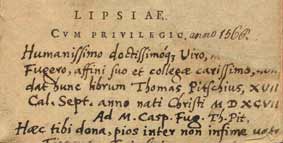 LIPSIAE.
CVM PRIVILEGIO, anno 1566.
Humanissimo doctissimoq; Viro,
Fugero, affini suo et collegae carissimo,
dat hunc librum Thomas, Pitschius, XVII
Cal. Sept. anno nati Christi MDXCVII
Ad M. Casp. Fug. Th. Pit.
Haec tibi dona, pios inter non infime